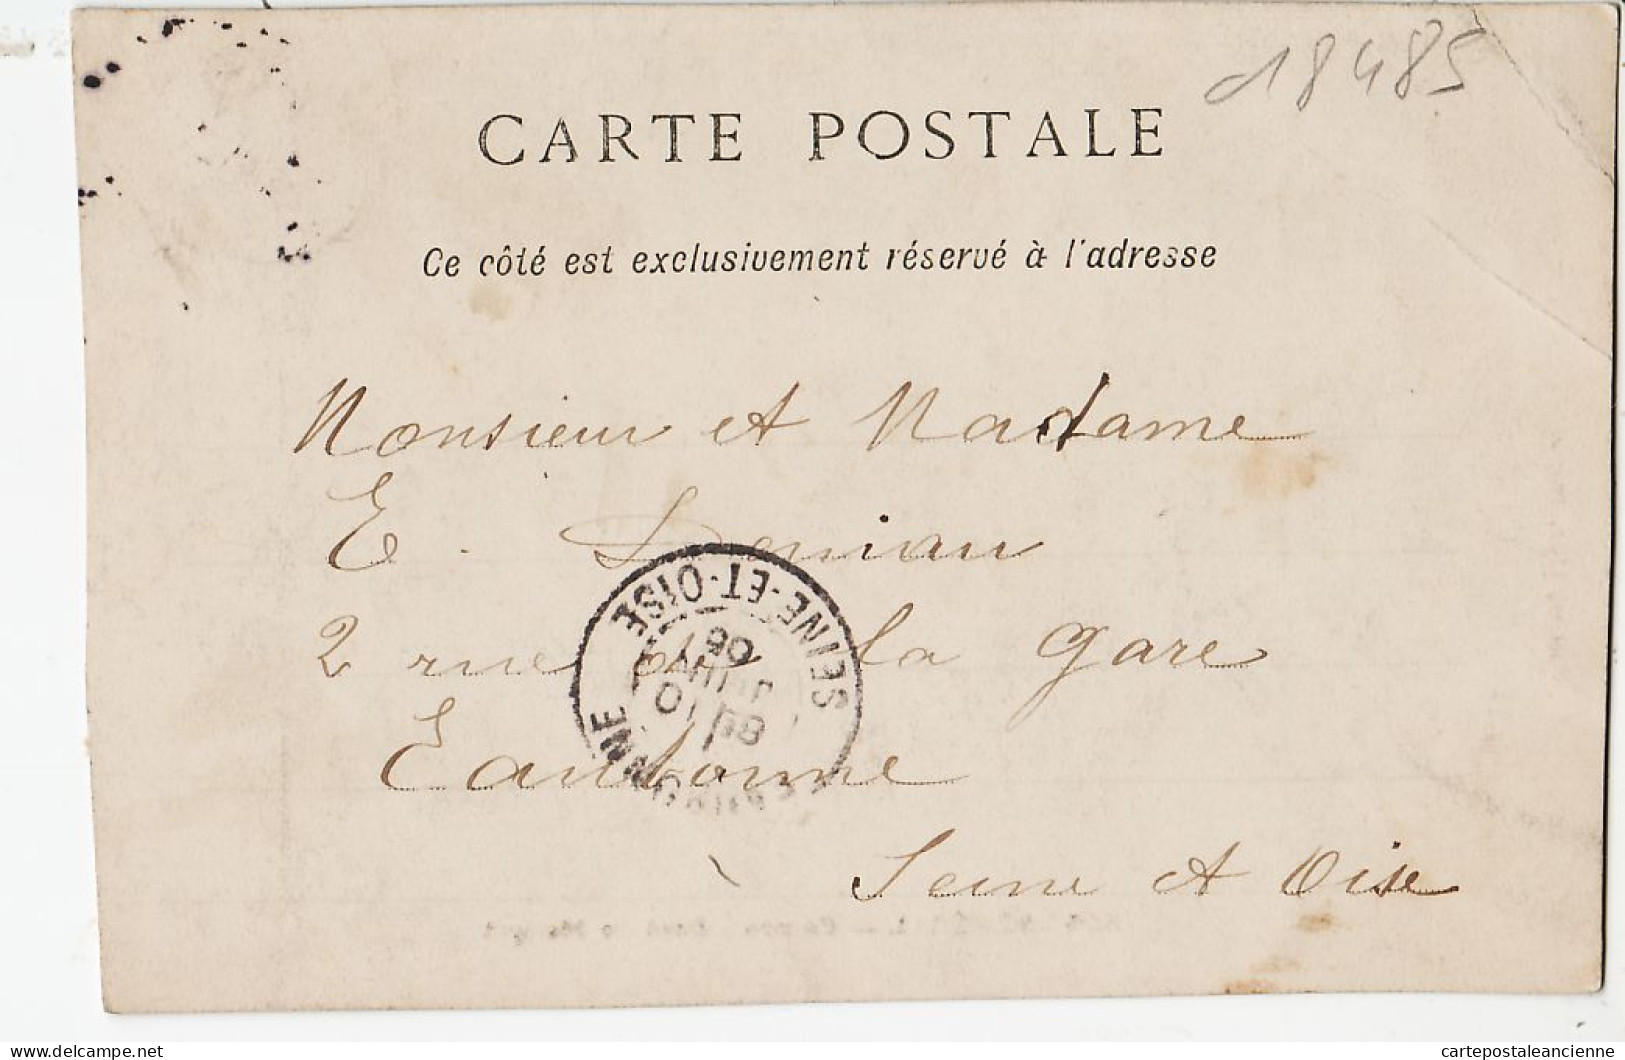 18485
CARTE POSTALE
Ce côté est exclusivement réservé à l'adresse
Monsieur et Madame
E. Deniau
2 rue de la gare
Eaubonne
Seine et Oise
SEINE-ET-OISE
06
cartepostaleancienne
https://www.delcampe.net